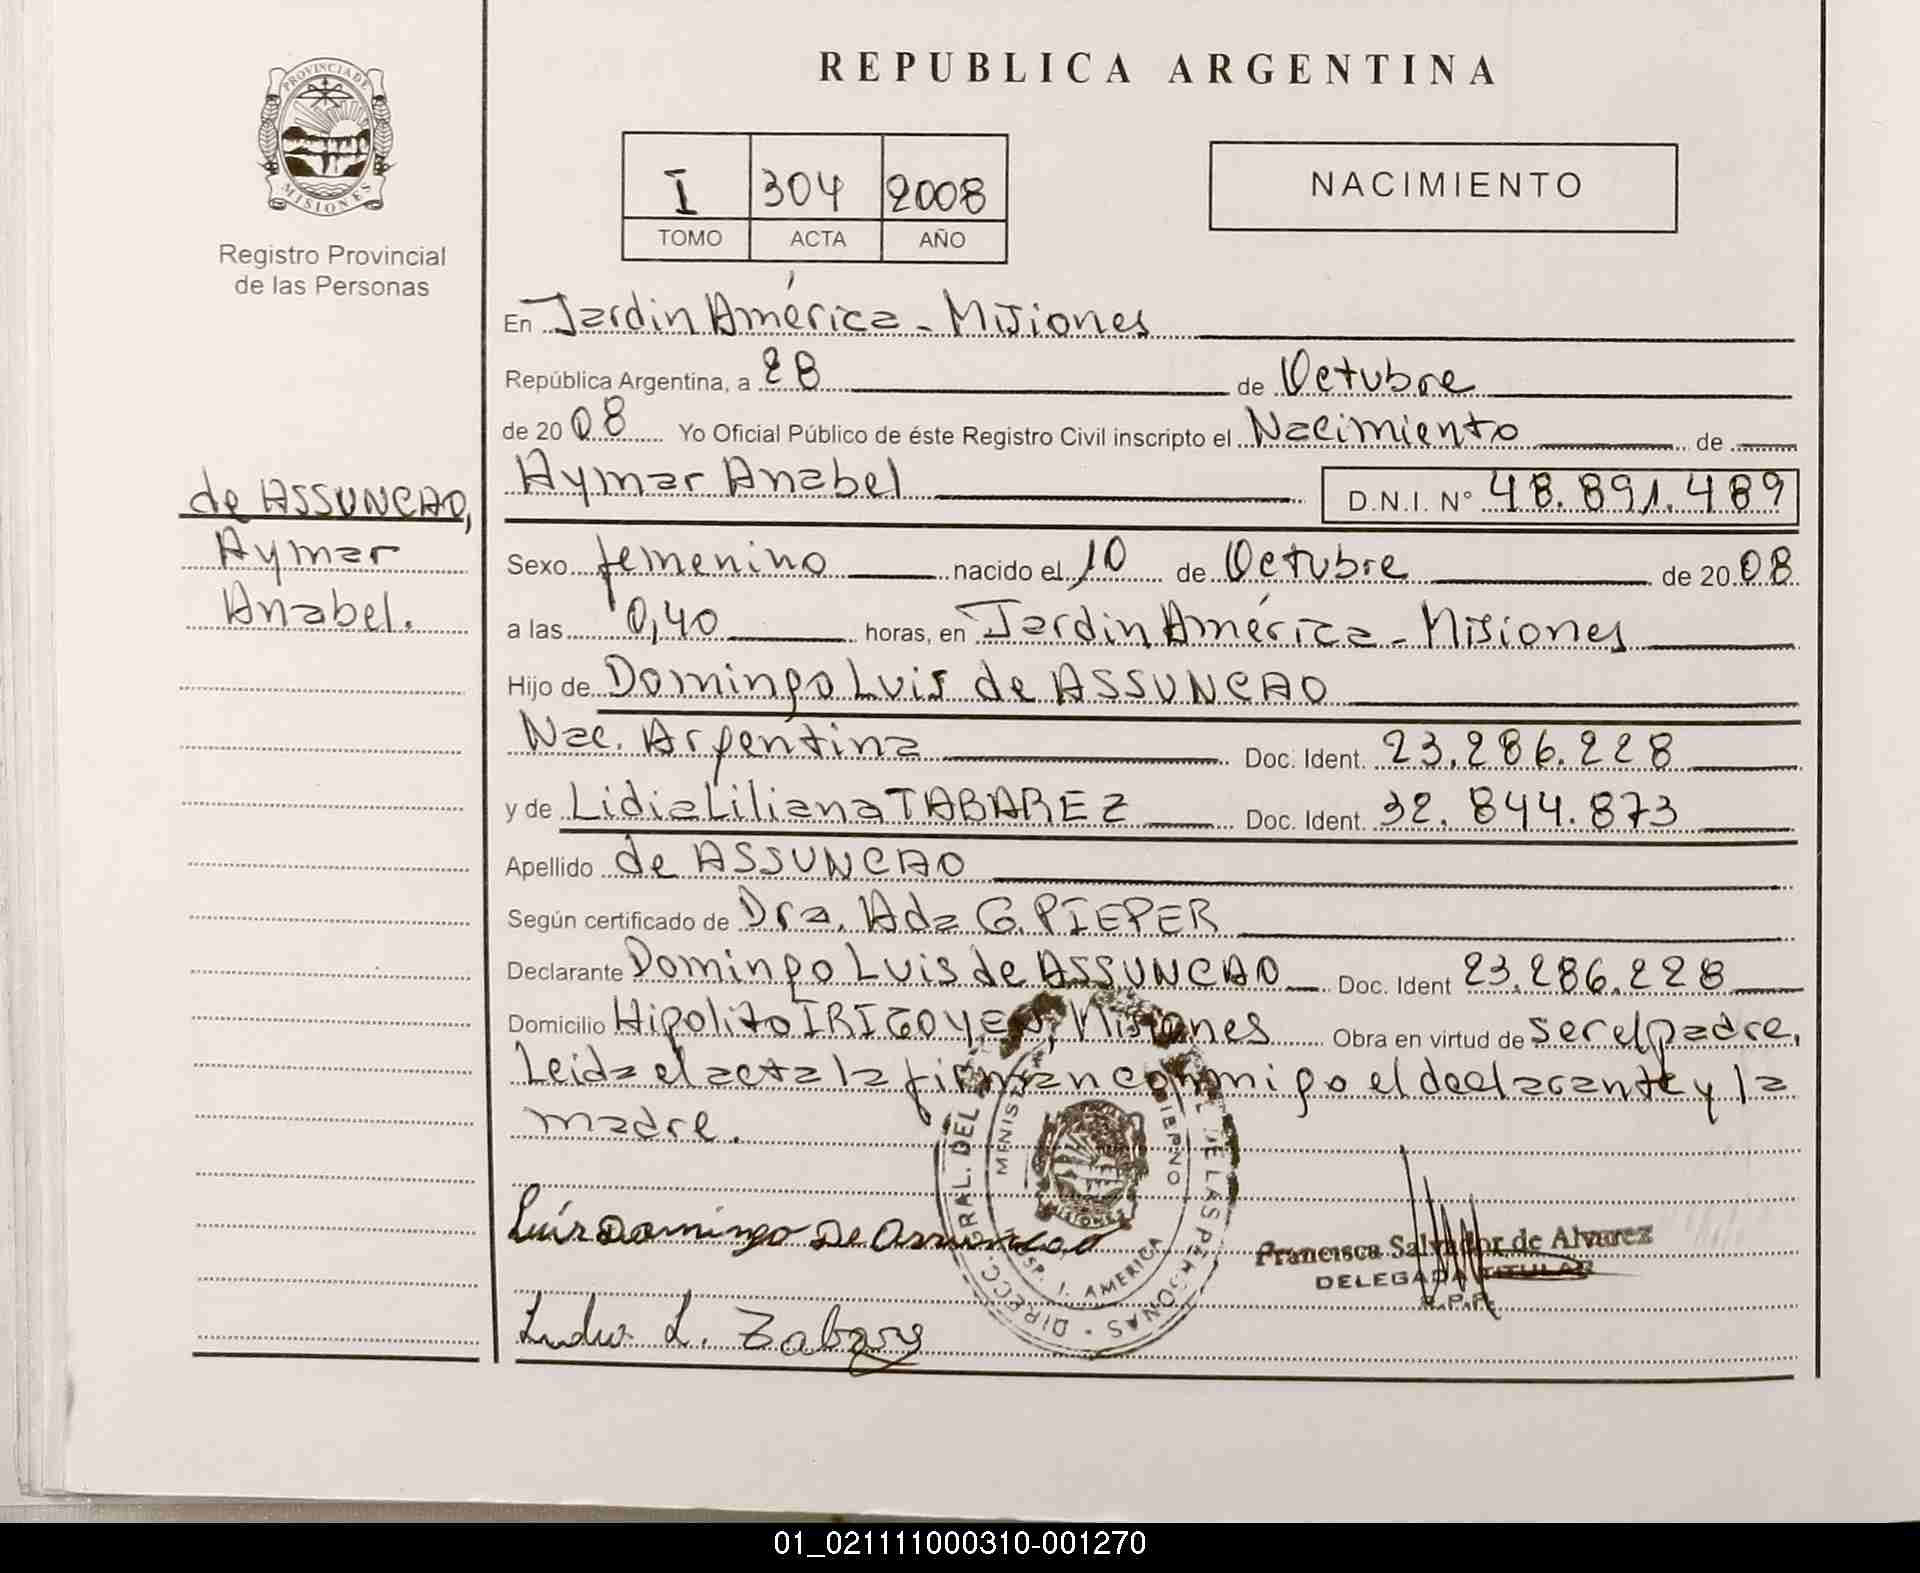 REPUBLICA ARGENTINA
PROVINCIA DE
MISIONES
Registro Provincial
de las Personas
I 304 2008
TOMO ACTA AÑO
NACIMIENTO
de ASSUNCAO,
Aymar
Anabel.
En Jardin América - Misiones
República Argentina, a 28 de Octubre
de 2008 Yo Oficial Público de éste Registro Civil inscripto el Nacimiento de
Aymar Anabel D.N.I. N° 48.891.489
Sexo femenino nacido el 10 de Octubre de 2008
a las 0,40 horas, en Jardin América - Misiones
Hijo de Domingo Luis de ASSUNCAO
Nac. Argentina Doc. Ident. 23.286.228
y de Lidia Liliana TABAREZ Doc. Ident. 32.844.873
Apellido de ASSUNCAO
Según certificado de Dra. Ada G. PIEPER
Declarante Domingo Luis de ASSUNCAO Doc. Ident 23.286.228
Domicilio Hipolito IRIGOYEN, Misiones Obra en virtud de ser el padre.
Leida el acta la firman conmigo el declarante y la
madre.
Luis Domingo De Assuncao
Francisca Salvador de Alvarez
DELEGADA TITULAR
R.P.P.
L. Tabarez
01_021111000310-001270